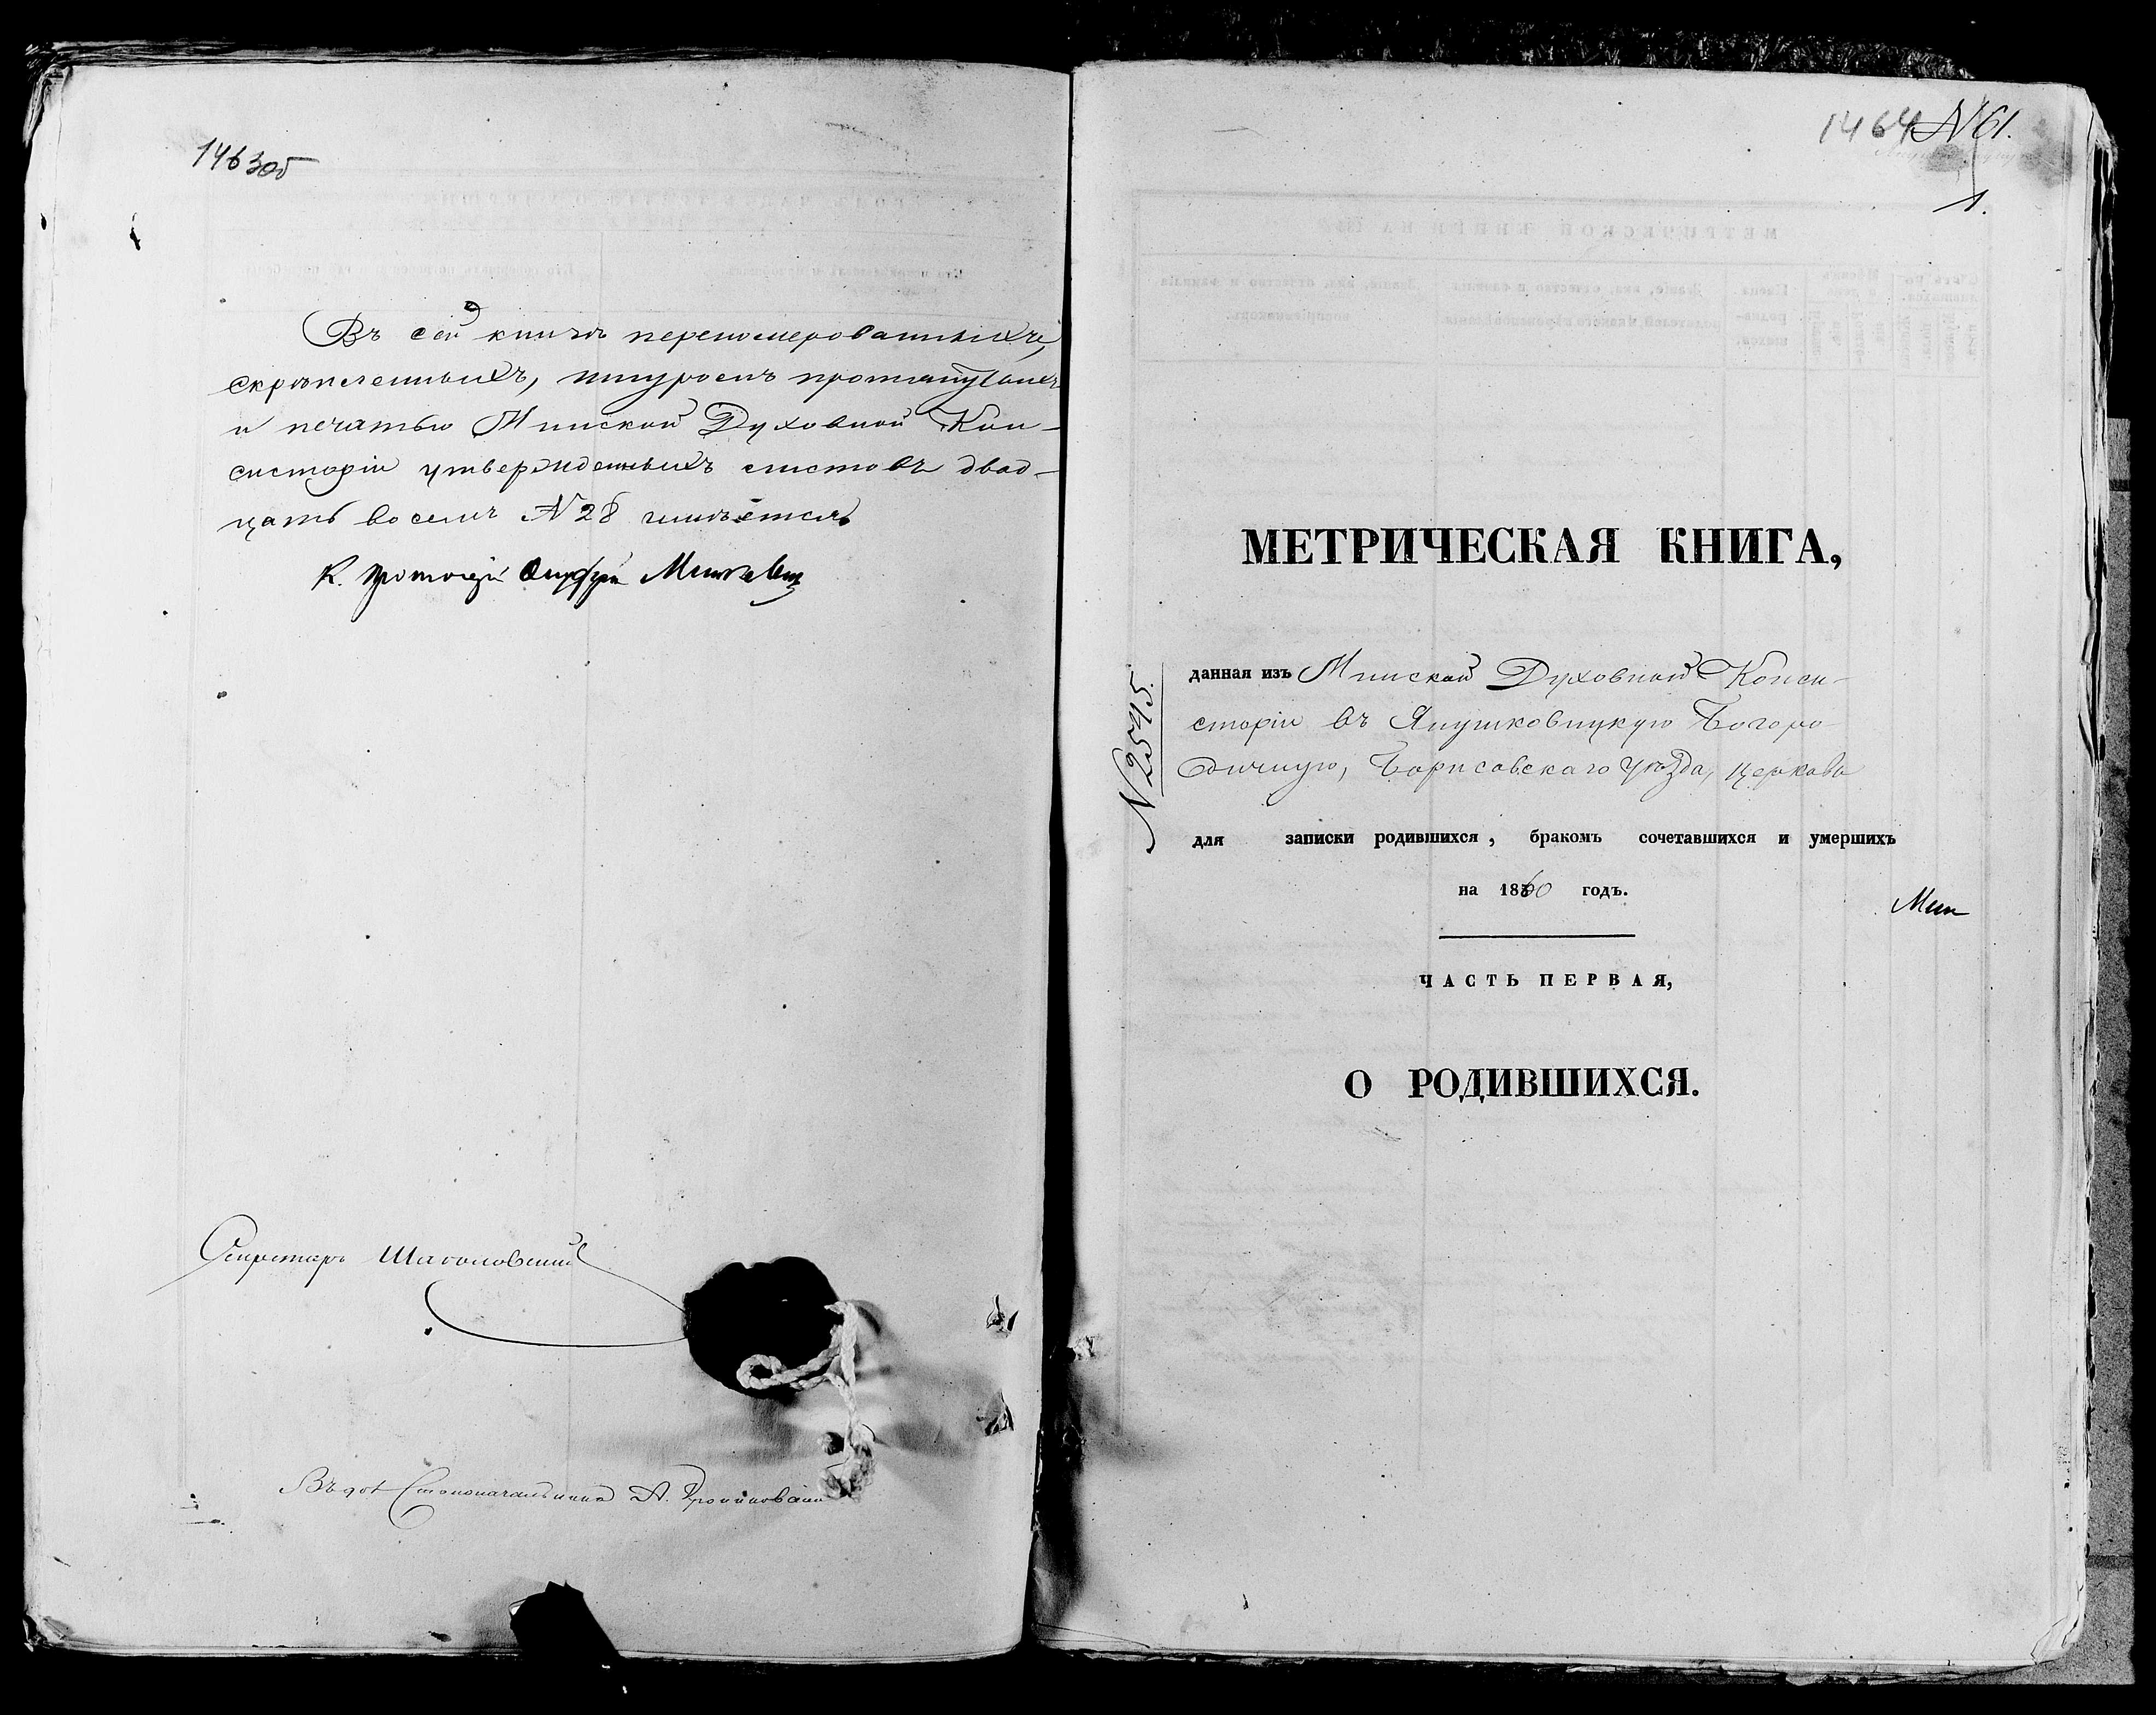 1463об
Въ сей книгѣ перенумерованныхъ,
скрѣпленныхъ, шнуромъ протянутыхъ
и печатью Минской Духовной Кон-
систоріи утвержденныхъ листовъ двад-
цать восемь N 28 числится
К. Протоіерей Онуфрій
Секретарь
Столоначальника А.
1464 N 61.
1.
МЕТРИЧЕСКАЯ КНИГА,
N 2545.
данная изъ Минской Духовной Конси-
сторіи въ Янушковицкую Богоро-
дичную, Борисовскаго уѣзда, церковь
для записки родившихся, бракомъ сочетавшихся и умершихъ
на 1860 годъ.
Мин
ЧАСТЬ ПЕРВАЯ,
О РОДИВШИХСЯ.